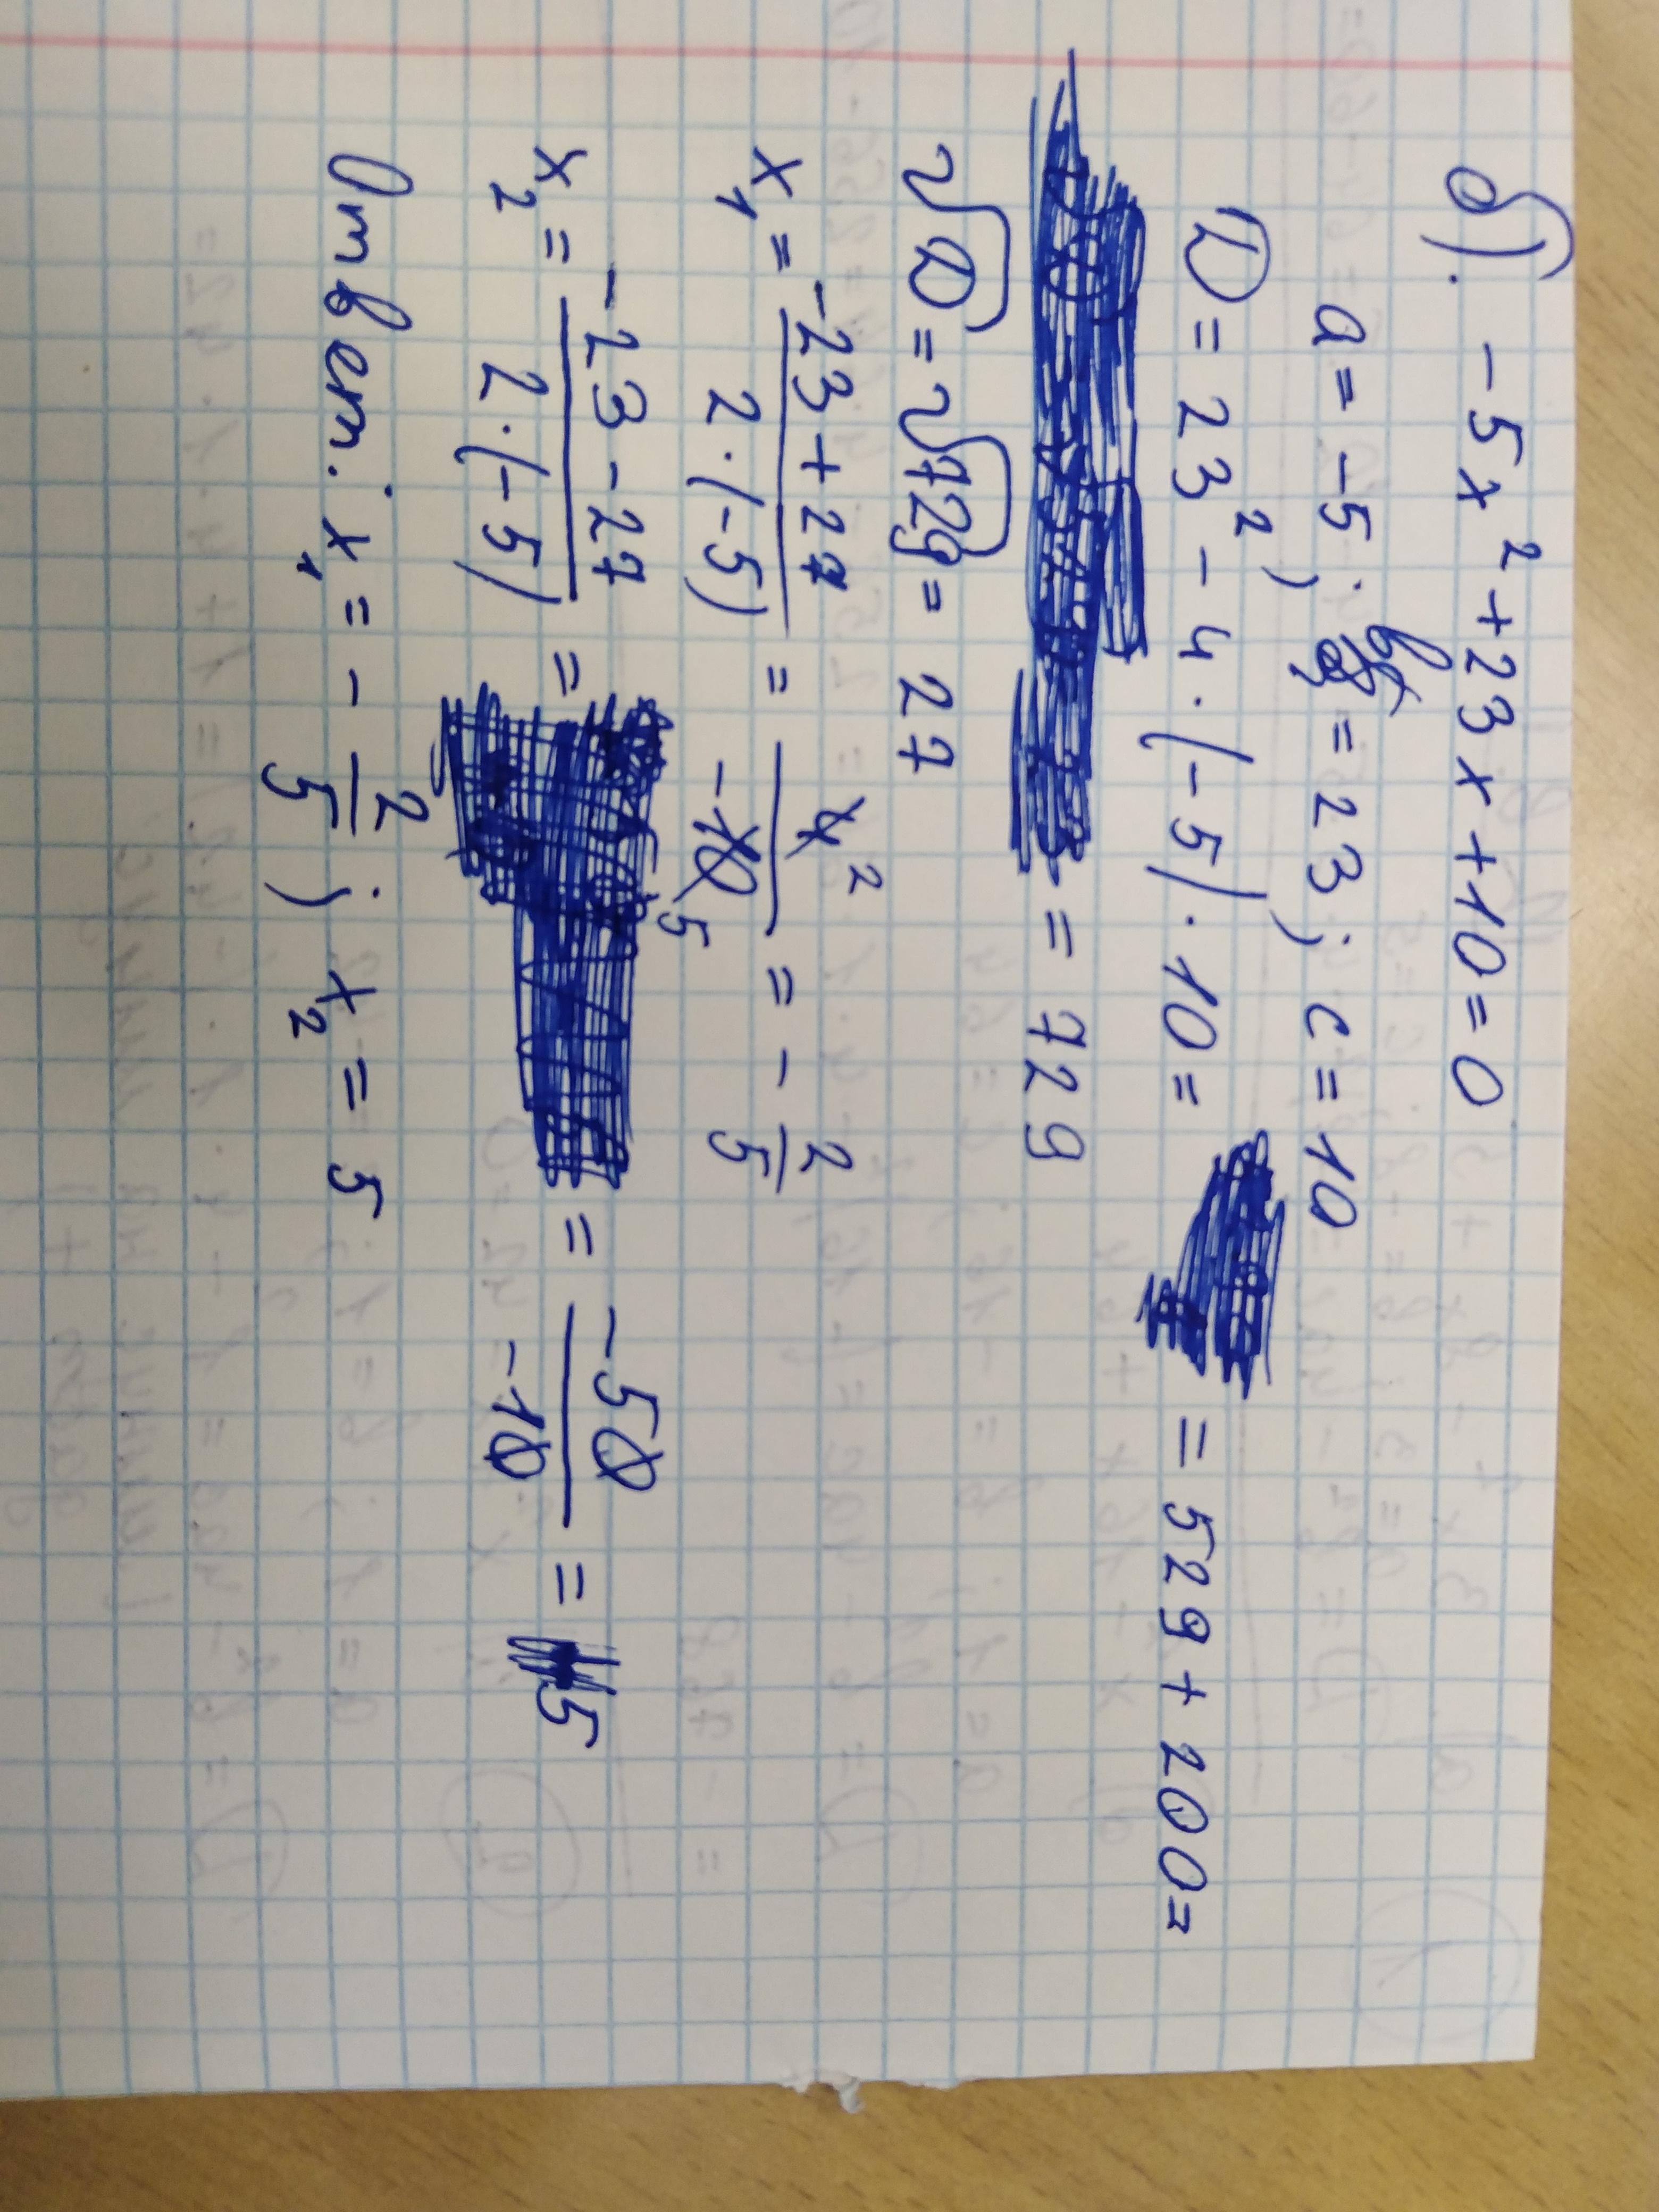 б). -5x² + 23x + 10 = 0
a = -5; b = 23; c = 10
D = 23² - 4 · (-5) · 10 = = 529 + 200 =
= 729
√D = √729 = 27
x₁ = (-23 + 27)/(2 · (-5)) = 4²/-10₅ = - 2/5
x₂ = (-23 - 27)/(2 · (-5)) = = -50/-10 = 5
Ответ: x₁ = - 2/5; x₂ = 5